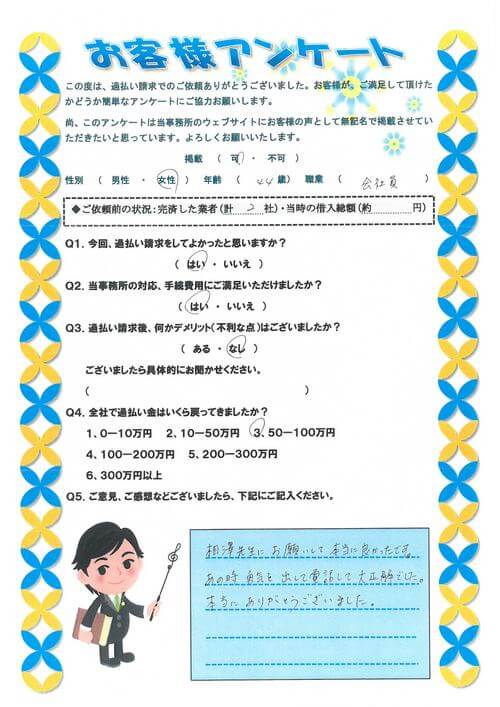 お客様アンケート
この度は、過払い請求でのご依頼ありがとうございました。お客様が、ご満足して頂けた
かどうか簡単なアンケートにご協力お願いします。
尚、このアンケートは当事務所のウェブサイトにお客様の声として無記名で掲載させてい
ただきたいと思っています。よろしくお願いいたします。
掲載 ( 可 ・ 不可 )
性別 ( 男性 ・ 女性 ) 年齢 ( 44 歳) 職業 ( 会社員 )
◆ご依頼前の状況:完済した業者(計 2 社)・当時の借入総額(約 円)
Q1. 今回、過払い請求をしてよかったと思いますか?
( はい ・ いいえ )
Q2. 当事務所の対応、手続費用にご満足いただけましたか?
( はい ・ いいえ )
Q3. 過払い請求後、何かデメリット(不利な点)はございましたか?
( ある ・ なし )
ございましたら具体的にお聞かせください。
( )
Q4. 全社で過払い金はいくら戻ってきましたか?
1、0-10万円 2、10-50万円 3、50-100万円
4、100-200万円 5、200-300万円
6、300万円以上
Q5. ご意見、ご感想などございましたら、下記にご記入ください。
相澤先生に お願いして 本当に良かったです。
あの時 勇気を 出して電話して 大正解でした。
本当に ありがとうございました。